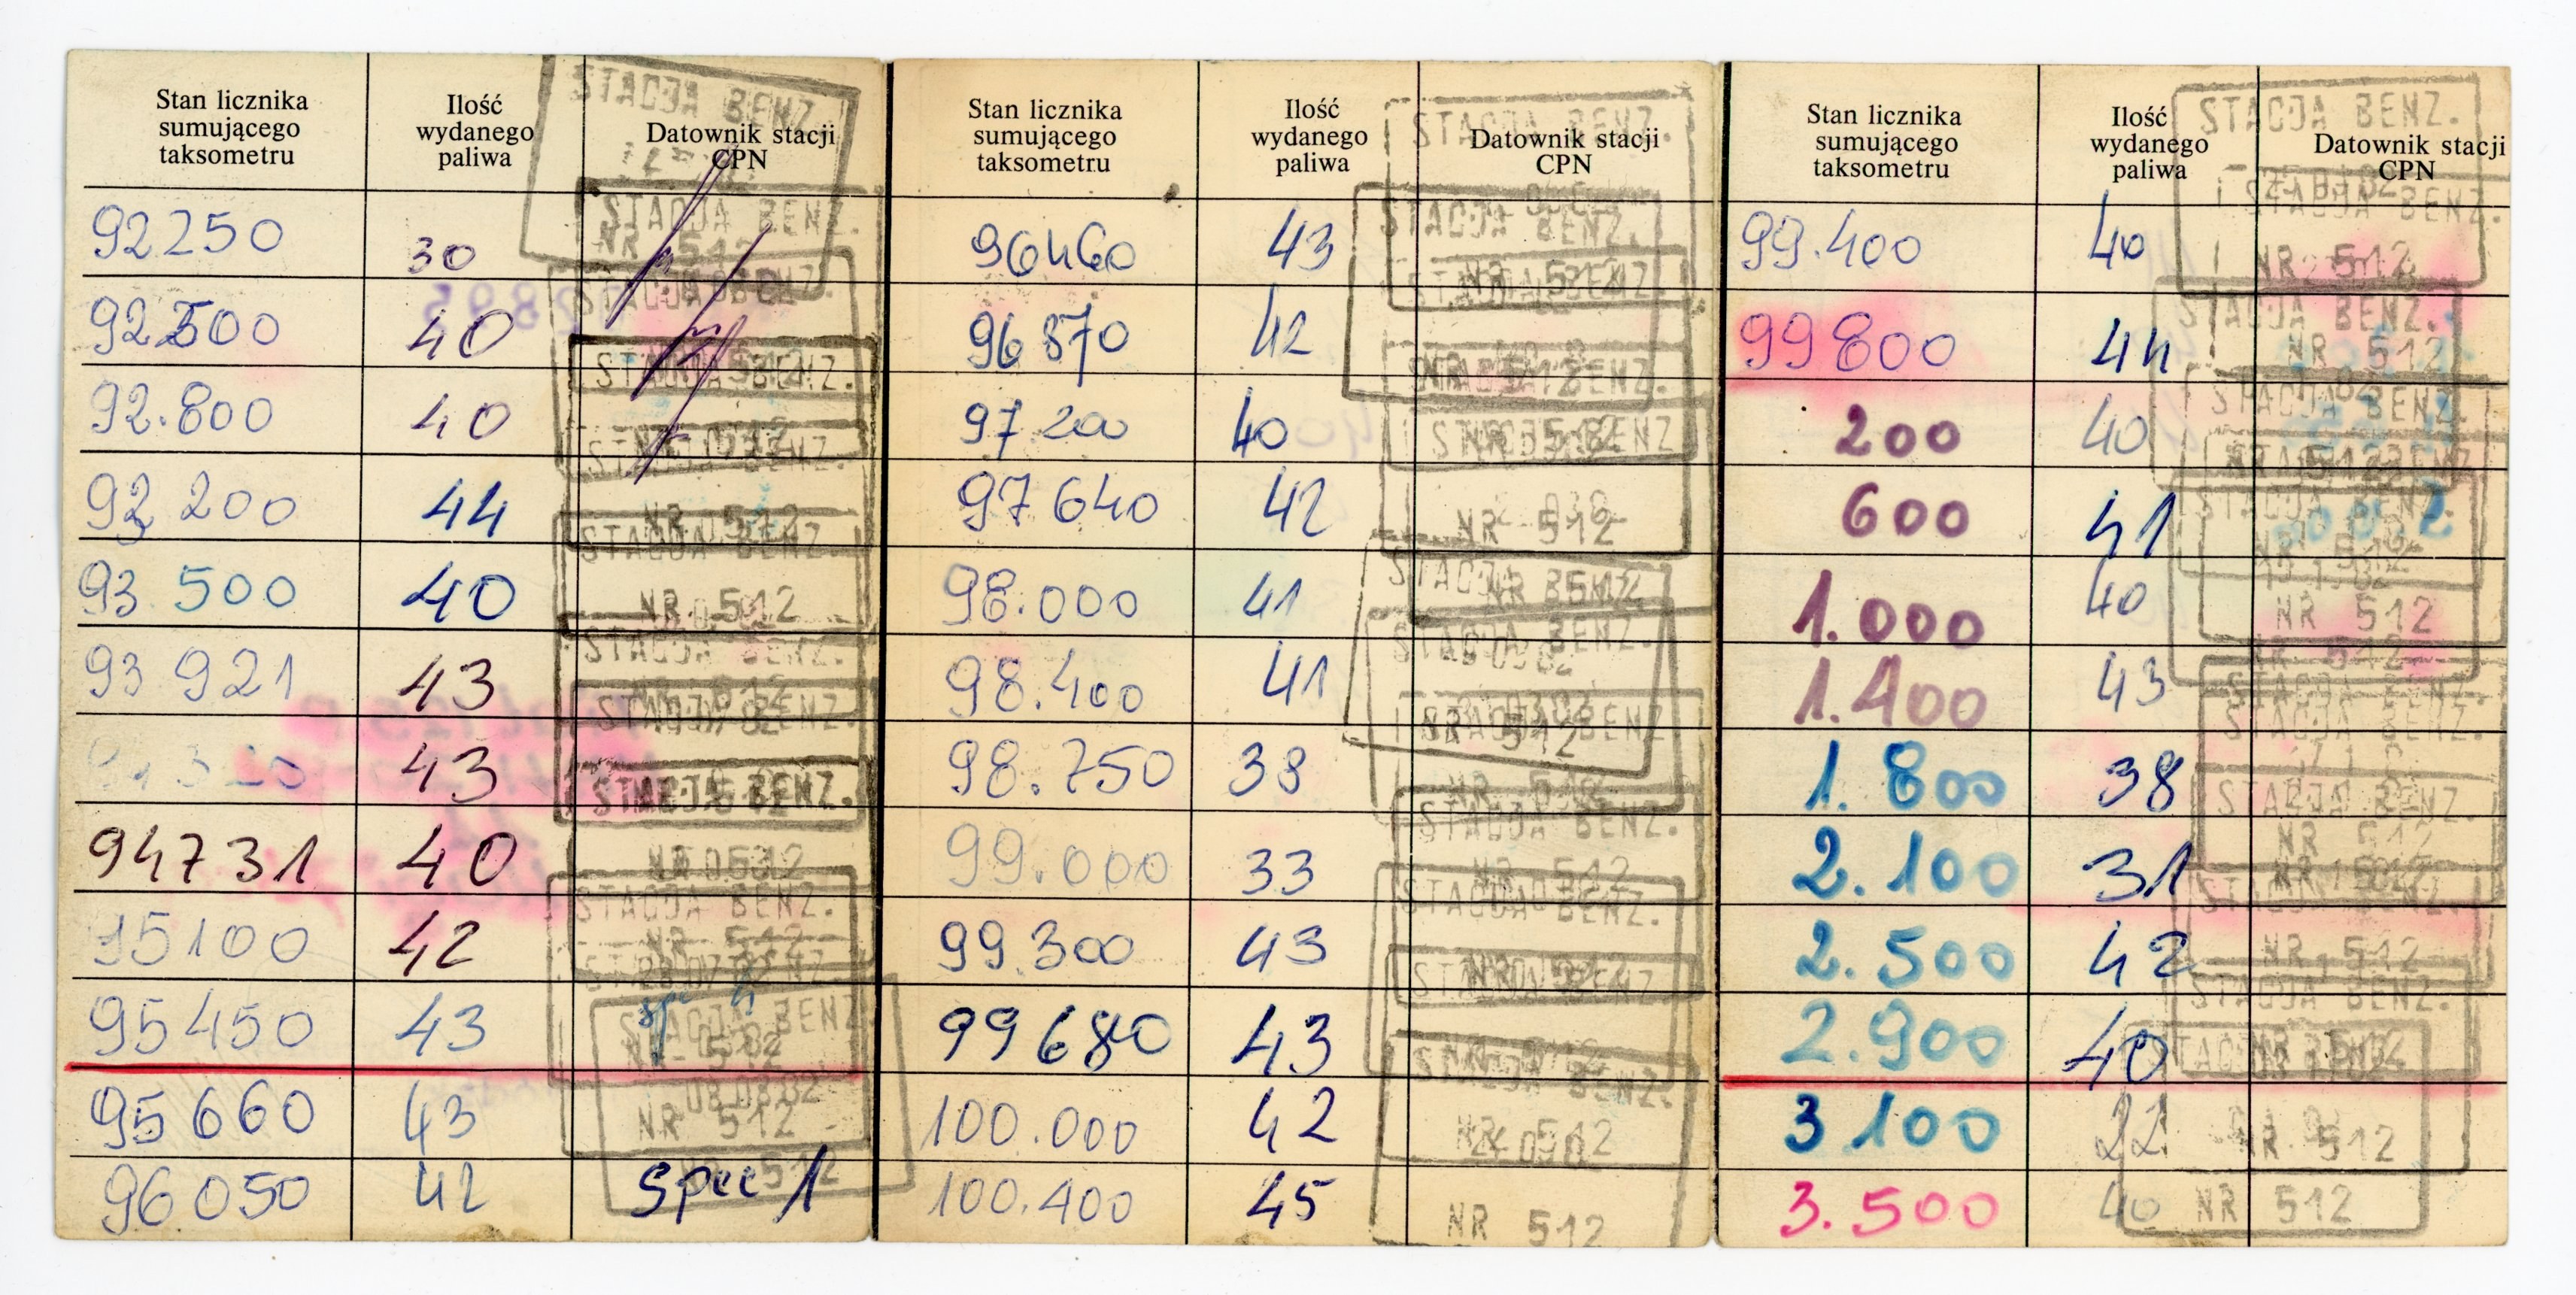 Stan licznika
sumującego
taksometru
Ilość
wydanego
paliwa
Datownik stacji
CPN
92250 30
92500 40
92.800 40
92 200 44
93 500 40
93 921 43
43
94731 40
95100 42
95450 43
95 660 43
96.050 42 spec 1
STACJA BENZ.
STACJA BENZ.
NR 512
STACJA BENZ.
STACJA BENZ.
STACJA BENZ.
NR 512
STACJA BENZ.
NR 512
STACJA BENZ.
STACJA BENZ.
STACJA BENZ.
STACJA BENZ.
NR 512
STACJA BENZ.
NR 512
08.08.82
NR 512
512
Stan licznika
sumującego
taksometru
Ilość
wydanego
paliwa
Datownik stacji
CPN
96460 43
96870 42
97200 40
97640 42
98.000 41
98.400 41
98.750 38
99.000 33
99.300 43
99680 43
100.000 42
100.400 45
STACJA BENZ.
STACJA BENZ.
NR 512
STACJA BENZ.
STACJA BENZ.
STACJA BENZ
NR 512
STACJA BENZ.
NR 512
STACJA BENZ.
STACJA BENZ
NR 512
STACJA BENZ.
NR 512
STACJA BENZ.
STACJA BENZ
STACJA BENZ.
NR 512
NR 512
Stan licznika
sumującego
taksometru
Ilość
wydanego
paliwa
Datownik stacji
CPN
99.400 40
99800 44
200 40
600 41
1.000 40
1.400 43
1.800 38
2.100 31
2.500 42
2.900 40
3 100 22
3.500 40
STACJA BENZ.
STACJA BENZ.
NR 512
STACJA BENZ.
NR 512
STACJA BENZ.
STACJA BENZ
STACJA BENZ.
NR 512
NR 512
STACJA BENZ.
STACJA BENZ.
STACJA BENZ.
NR 512
STACJA BENZ.
NR 512
STACJA BENZ.
STACJA BENZ
NR 512
NR 512